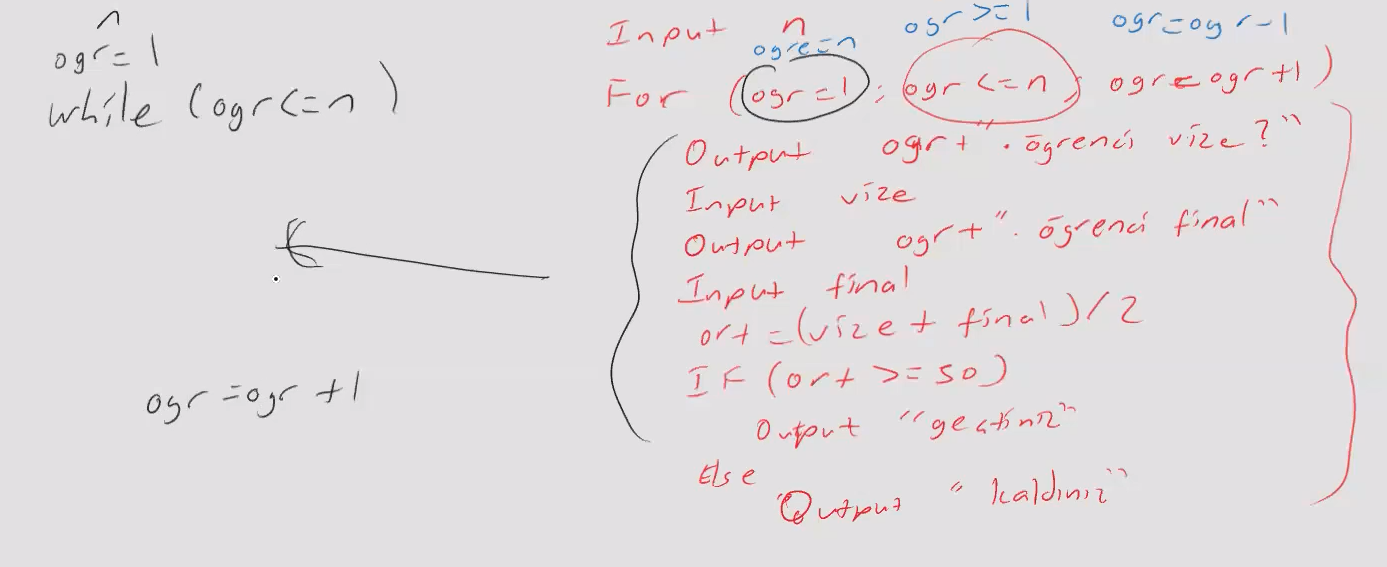 n
ogr=1
while (ogr<=n)
ogr=ogr+1
Input n
ogr=n ogr>=1 ogr=ogr-1
For (ogr=1; ogr<=n; ogr=ogr+1)
Output ogr+". öğrenci vize?"
Input vize
Output ogr+". öğrenci final"
Input final
ort=(vize+final)/2
IF (ort>=50)
Output "geçtiniz"
Else
Output "kaldınız"